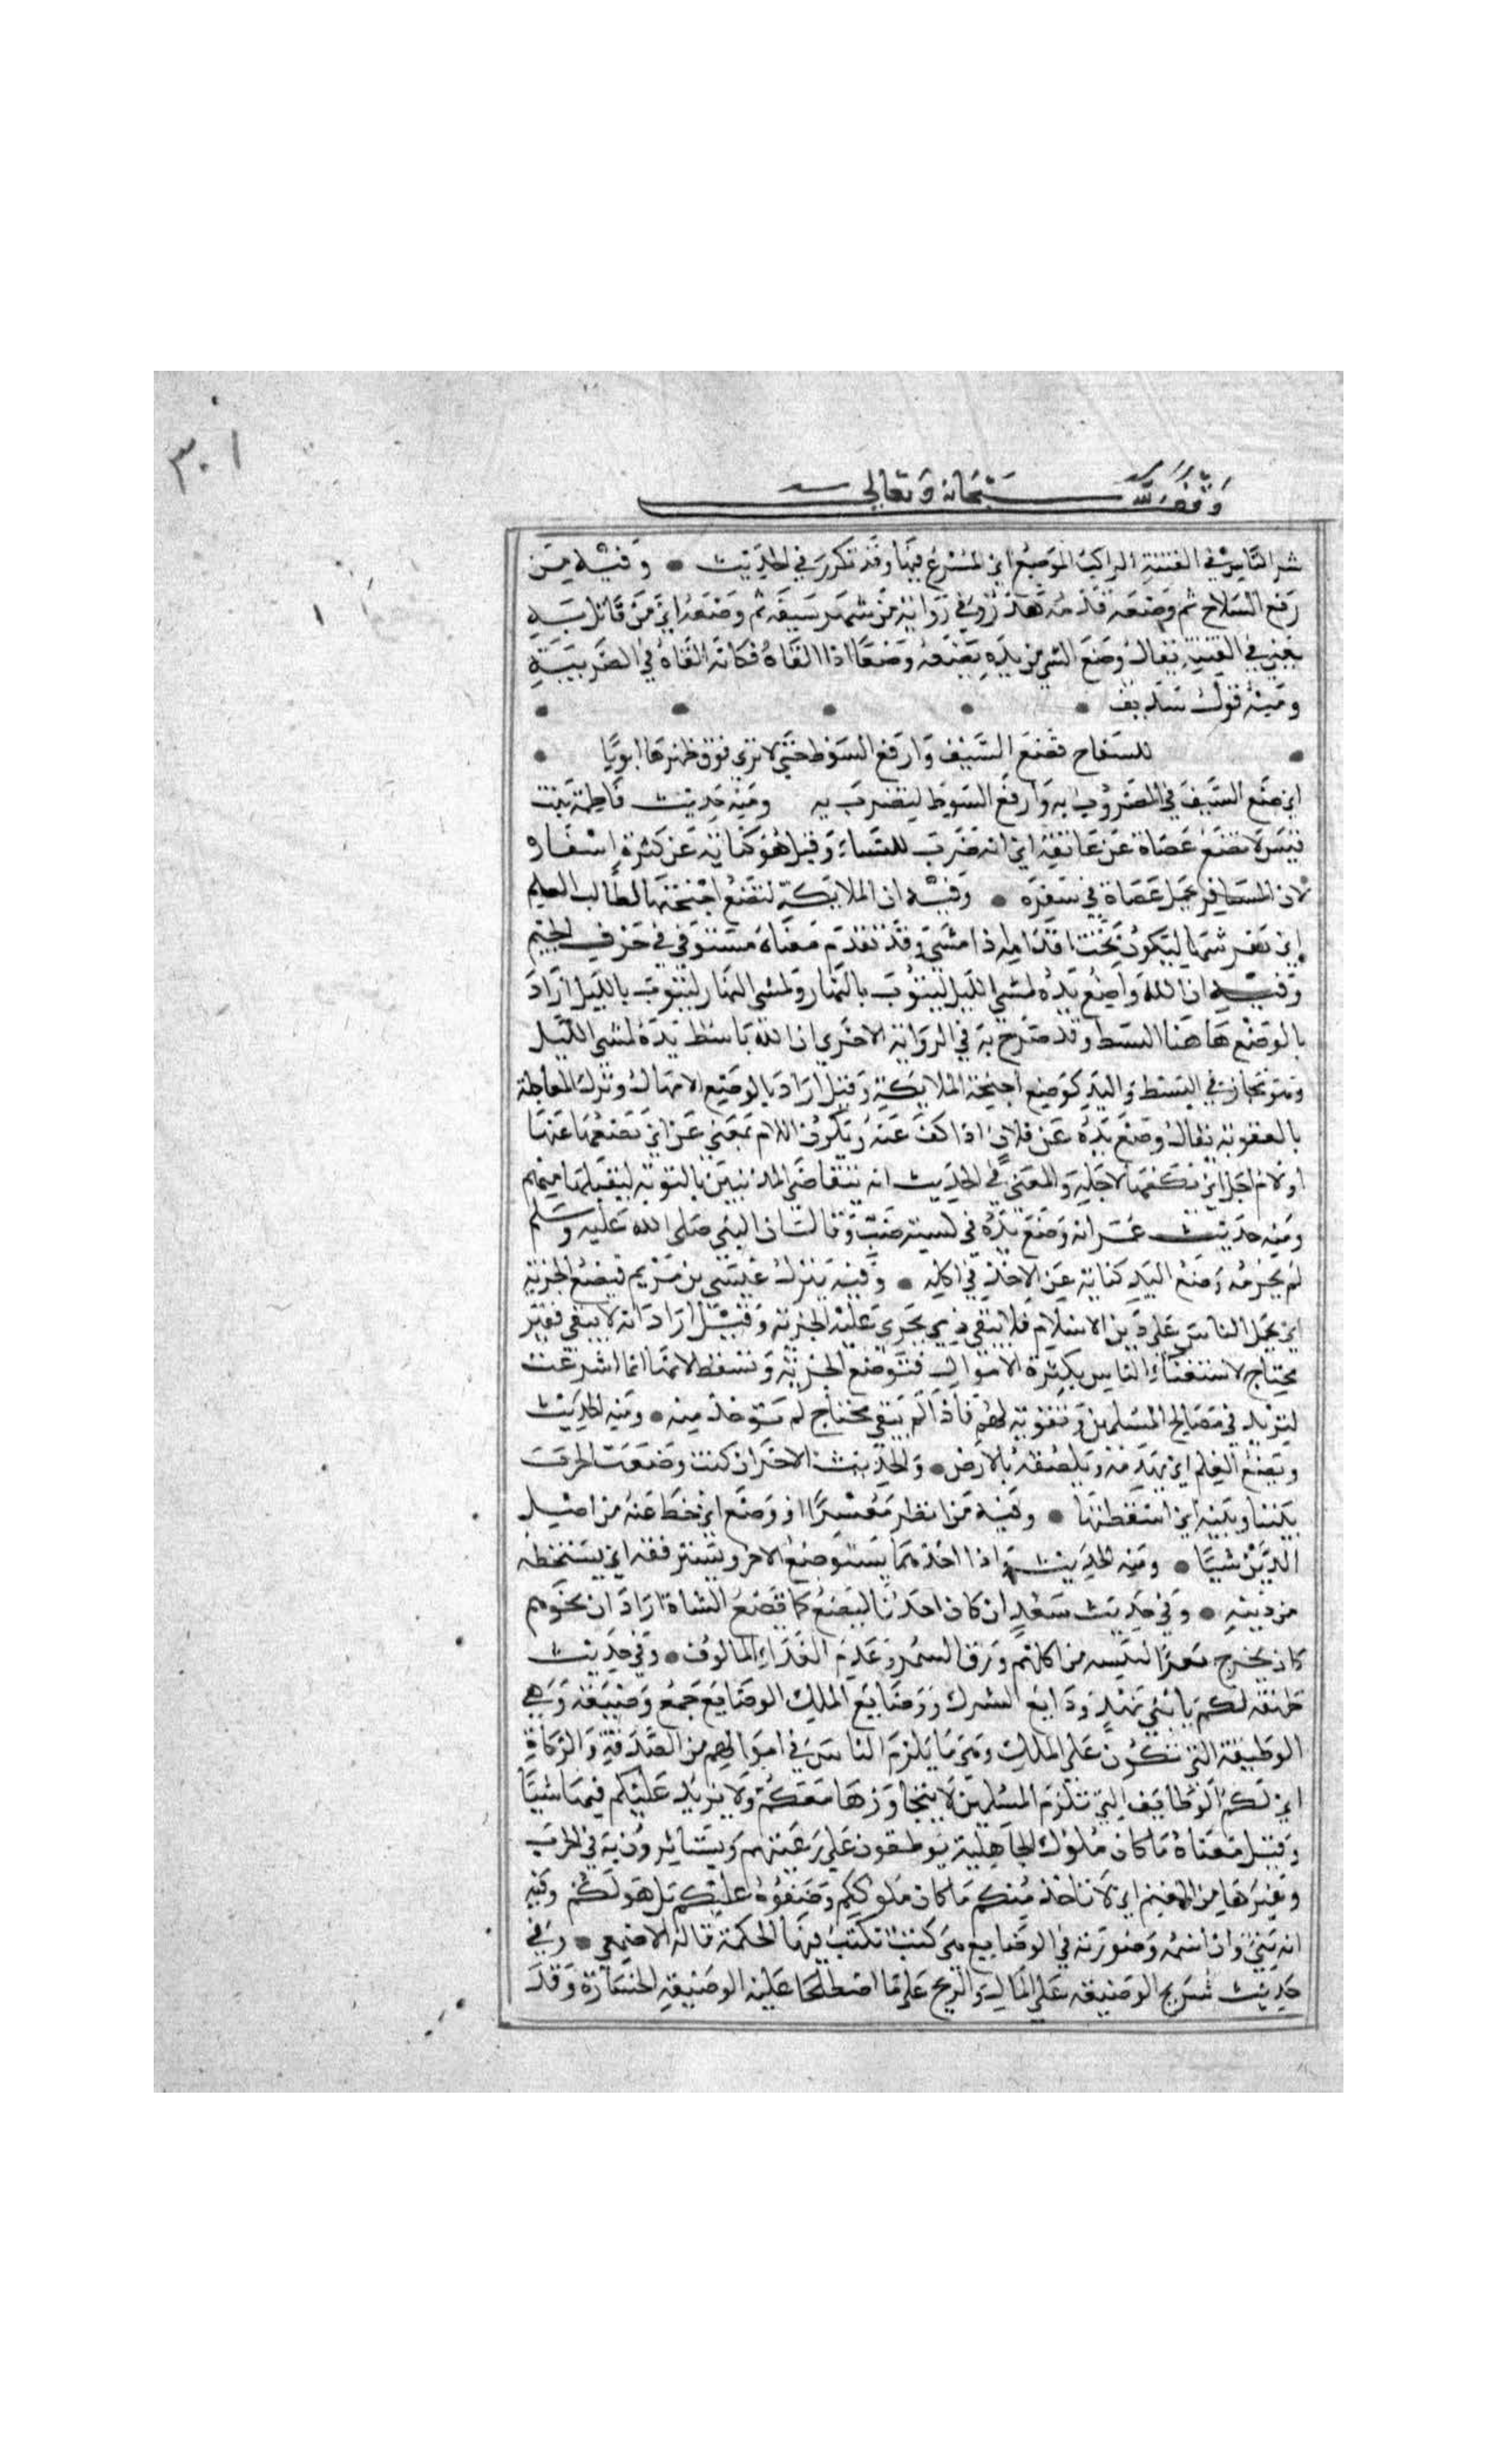 ٣٠١
وقف لله سبحانه وتعالى
شر الناس في الفتنة الراكب الموضع اي المسرع فيها وقد تكرر في الحديث • وفيه من
رفع السلاح ثم وضعه فدمه هدر وفي رواية من شهر سيفه ثم وضعه اي من قاتل به
يعني في الفتنة يقال وضع الشي من يده يضعه وضعا اذا القاه فكانه القاه في الضريبة
ومنه قول سديف • • • • •
• للسفاح فضع السيف وارفع السوط حتى لا ترى فوق ظهرها امويا •
اي ضع السيف في المضروب به وارفع السوط ليضرب به ومنه حديث فاطمة بنت
قيس لا تضع عصاه عن عاتقه اي انه ضرب للنساء وقيل هو كناية عن كثرة اسفاره
لان المسافر يحمل عصاه في سفره • وفيه ان الملايكة لتضع اجنحتها لطالب العلم
اي تفرشها ليكون تحت اقدامه اذا مشى وقد تقدم معناه مستوفى في حرف الجيم
وفيه ان الله واضع يده لمسي الليل ليتوب بالنهار ولمسي النهار ليتوب بالليل اراد
بالوضع هاهنا البسط وقد صرح به في الرواية الاخرى ان الله باسط يده لمسي الليل
وهو مجاز في البسط واليد كوضع اجنحة الملايكة وقيل اراد بالوضع الامهال وترك المعاجلة
بالعقوبة يقال وضع يده عن فلان اذا كف عنه وتكون اللام بمعنى عن اي يضعها عنها
او لام اجل اي يكفها لاجله والمعنى في الحديث انه يتقاضى المذنبين بالتوبة ليقبلها منهم
ومنه حديث عمر انه وضع يده في كسية ضب وقال ان النبي صلى الله عليه وسلم
لم يحرمه وضع اليد كناية عن الاخذ في اكله • وفيه ينزل عيسى بن مريم فيضع الجزية
اي يحمل الناس على دين الاسلام فلا يبقى ذمي يجري عليه الجزية وقيل اراد انه لا يبقى فقير
محتاج لاستغناء الناس بكثرة الاموال فتوضع الجزية وتسقط لانها انما شرعت
لتزيد في مصالح المسلمين وتقوية لهم فاذا لم يبق محتاج لم توخذ منه • ومنه الحديث
ويضع العلم اي يهدمه ويلصقه بالارض • والحديث الاخر ان كنت وضعت الحرب
بيننا وبينه اي اسقطتها • وفيه من انظر معسرا او وضع اي حط عنه من اصل
الدين شيا • ومنه الحديث واذا احدهما يستوضع الاخر ويسترفقه اي يستحطه
من دينه • وفي حديث سعد ان كان احدنا ليضع كما تضع الشاة اراد ان نحوهم
كان يخرج بعرا ليبسه من اكلهم ورق السمر وعدم الغذاء المالوف • وفي حديث
طهفة لكم يا بني نهد ودايع الشرك ووضايع الملك الوضايع جمع وضيعة وهي
الوظيفة التي تكون على الملك وهي ما يلزم الناس في اموالهم من الصدقة والزكاة
اي لكم الوظايف التي تلزم المسلمين لا يتجاوزها معكم ولا يزيد عليكم فيها شيا
وقيل معناه ما كان ملوك الجاهلية يوظفون على رعيتهم ويستاثرون به في الحرب
وغيرها من المغنم اي لا ناخذ منكم ما كان ملوككم وضعوه عليكم بل هو لكم وفيه
انه نبي وان اسمه وصورته في الوضايع هي كتب تكتب فيها الحكمة قاله الاصمعي • وفي
حديث شريح الوضيعة على المال والربح على ما اصطلحا عليه الوضيعة الخسارة وقد